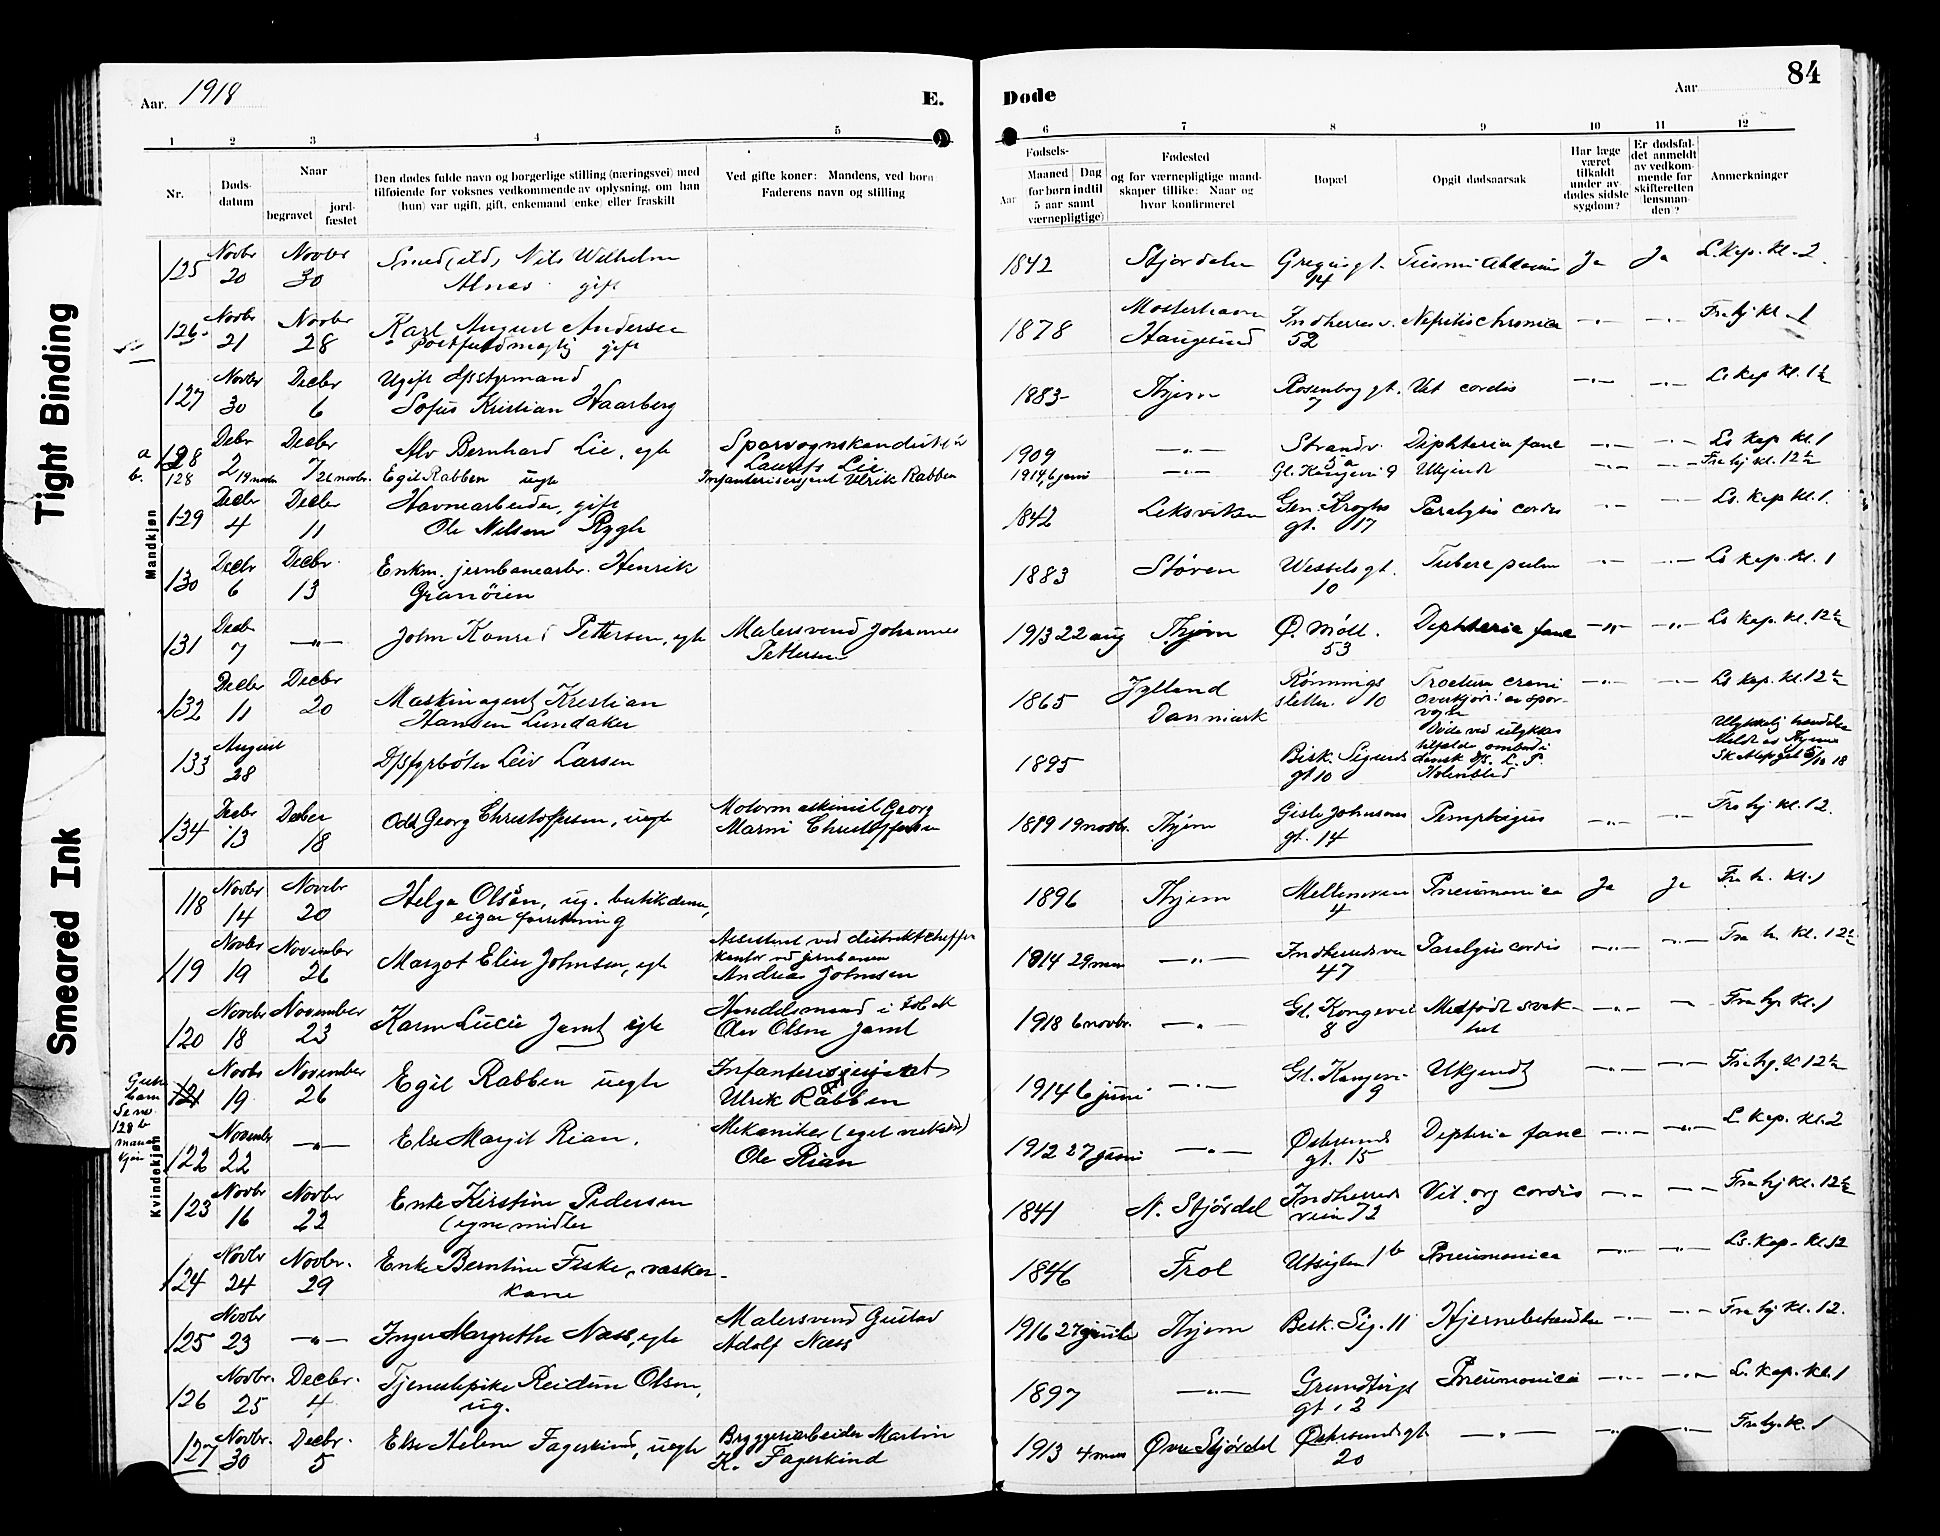 84
Aar. 1918
E.
Døde
Aar
1 2 3 4 5 6 7 8 9 10 11 12
Nr.
Døds-
datum
Naar
begravet
jord-
fæstet
Den dødes fulde navn og borgerlige stilling (næringsvei) med
tilføiende for voksnes vedkommende av oplysning, om han
(hun) var ugift, gift, enkemand (enke) eller fraskilt
Ved gifte koner: Mandens, ved børn
Faderens navn og stilling
Fødsels-
Aar
Maaned Dag
for børn indtil
5 aar samt
værnepligtige)
Fødested
og for værnepligtige mand-
skaper tillike: Naar og
hvor konfirmeret
Bopæl
Opgit dødsaarsak
Har læge
været
tilkaldt
under av-
dødes sidste
sygdom?
Er dødsfal-
det anmeldt
av vedkom-
mende for
skifteretten
(lensman-
den?
Anmerkninger
Tight Binding
Smeared Ink
Mandkjøn
125 Novbr 20 Novbr 30 Nils Wilhelm
gift
1842 Stjørdalen 14 Ja Ja L. Kap. Kl. 2
126 Novbr 21 Novbr 28 Karl August Andersen
Postfuldmægtig gift
1878 Haugesund Indherredsv. 52 Nefritis chronica Kl. 1
127 Novbr 30 Decbr 6 Ugift
Sofus Kristian Haarberg
1883 Thjem Rosenborg gt. 7 Vit cordis Ls Kap Kl. 1½
a 128 Decbr 2 Decbr 7 Alv Bernhard Lie, egte Sporvognskonduktør
Laurits Lie
1909 Strandv. Diphteria fauc Ls Kap Kl. 1
b. 128 19 novbr. 26 novbr. Egil Rabben uegte Infanterisergeant Ulrik Rabben
1914 6 juni Gl. Kongevei 9 Ukjendt Kl. 12½
129 Decbr 4 Decbr 11 Havnearbeider, gift
Ole Nilsen Rygh
1842 Leksviken Gen. Kroghs
gt. 17 Paralysis cordis Ls. Kap Kl. 1.
130 Decbr 6 Decbr. 13 Enkm. jernbanearbr. Henrik
Granöien
1883 Støren Wessels gt.
10 Tuberc pulm Ls Kap. Kl. 1
131 Decbr 7 —"— John Konrad Pettersen, egte Malersvend Johannes
Pettersen
1913 22 aug Thjem Ø. Møll.
53 Diphteria fauc Ls Kap. Kl. 12½
132 Decbr 11 Decbr 20 Maskinagent Kristian
Hansen Lundaker
1865 Jylland
Danmark Rønnings
sletten 10 Fractura cranii
Overkjørt av spor-
vogn Ls Kap. Kl. 12½
133 August 28 D/Sfyrbøter Leiv Larsen
1895 Bisk. Sigurds
gt 10 Døde ved ulykkes
tilfælde ombord i
dansk D/S. L. P.
Holmblad
134 Decbr 13 Decber 18 Odd Georg Christoffersen, uegte Motormaskinist Georg
Marni Christoffersen
19 novbr. Thjem Gisle Johnsons
gt. 14 Pemphigus Kl. 12.
Kvindekjøn
118 Novbr 14 Novbr 20 Helga Olsen, ug. butikdame,
eigen forretning
1896 Thjem Mellemveien
4 Pneumonica Ja Ja Kl. 1
119 Novbr 19 November 26 Margot Elise Johnsen, egte Assistent ved distriktchefens
kontor ved jernbanen
Andreas Johnsen
1914 29 mars —"— Indherredsvei
47 Paralysis cordis Kl. 12½
120 Novbr 18 November 23 Karin Lucie Jamt egte Handelsmand i tobak
Olav Olsen Jamt
1918 6 novbr. —"— Gl. Kongevei
8 Medfødt svak-
het Kl. 1
121 Novbr 19 November 26 Egil Rabben uegte Infanterisergeant
Ulrik Rabben
1914 6 juni —"— Gl. Kongevei
9 Ukjendt Kl 12½
122 November 22 —"— Else Margit Rian. Mekaniker (eget verksted)
Ole Rian
1912 27 juni —"— Østersunds
gt. 15 Dipteria fauc L Kap. Kl. 2
123 Novbr 16 Novbr 22 Enke Kirstine Pedersen
(egne midler
1841 N. Stjørdal Indherreds
veien 72 Vit. org cordis Kl. 12½
124 Novbr 24 Novbr. 29 Enke Berntine Fiske, vasker-
kone
1846 Frol Utsigten 1b Pneumonica Ls. Kap. Kl. 12
125 Novbr 23 —"— Inger Margrethe Næss, egte Malersvend Gustav
Adolf Næss
1916 Thjem Bisk. Sig. 11 Kl. 12.
126 Novbr. 25 Decbr. 4 Tjenestepike Reidun Olsen,
ug.
1897 —"— Grundtvigs
gt. 2 Pneumonica L. Kap. Kl. 1
127 Novbr. 30 Decbr. 5 Else Helene Fagerkind, uegte Bryggeriarbeider Martin
K. Fagerkind
1913 4 mars Øvre Stjørdal Østersundsgt
20 —"— Kl. 1